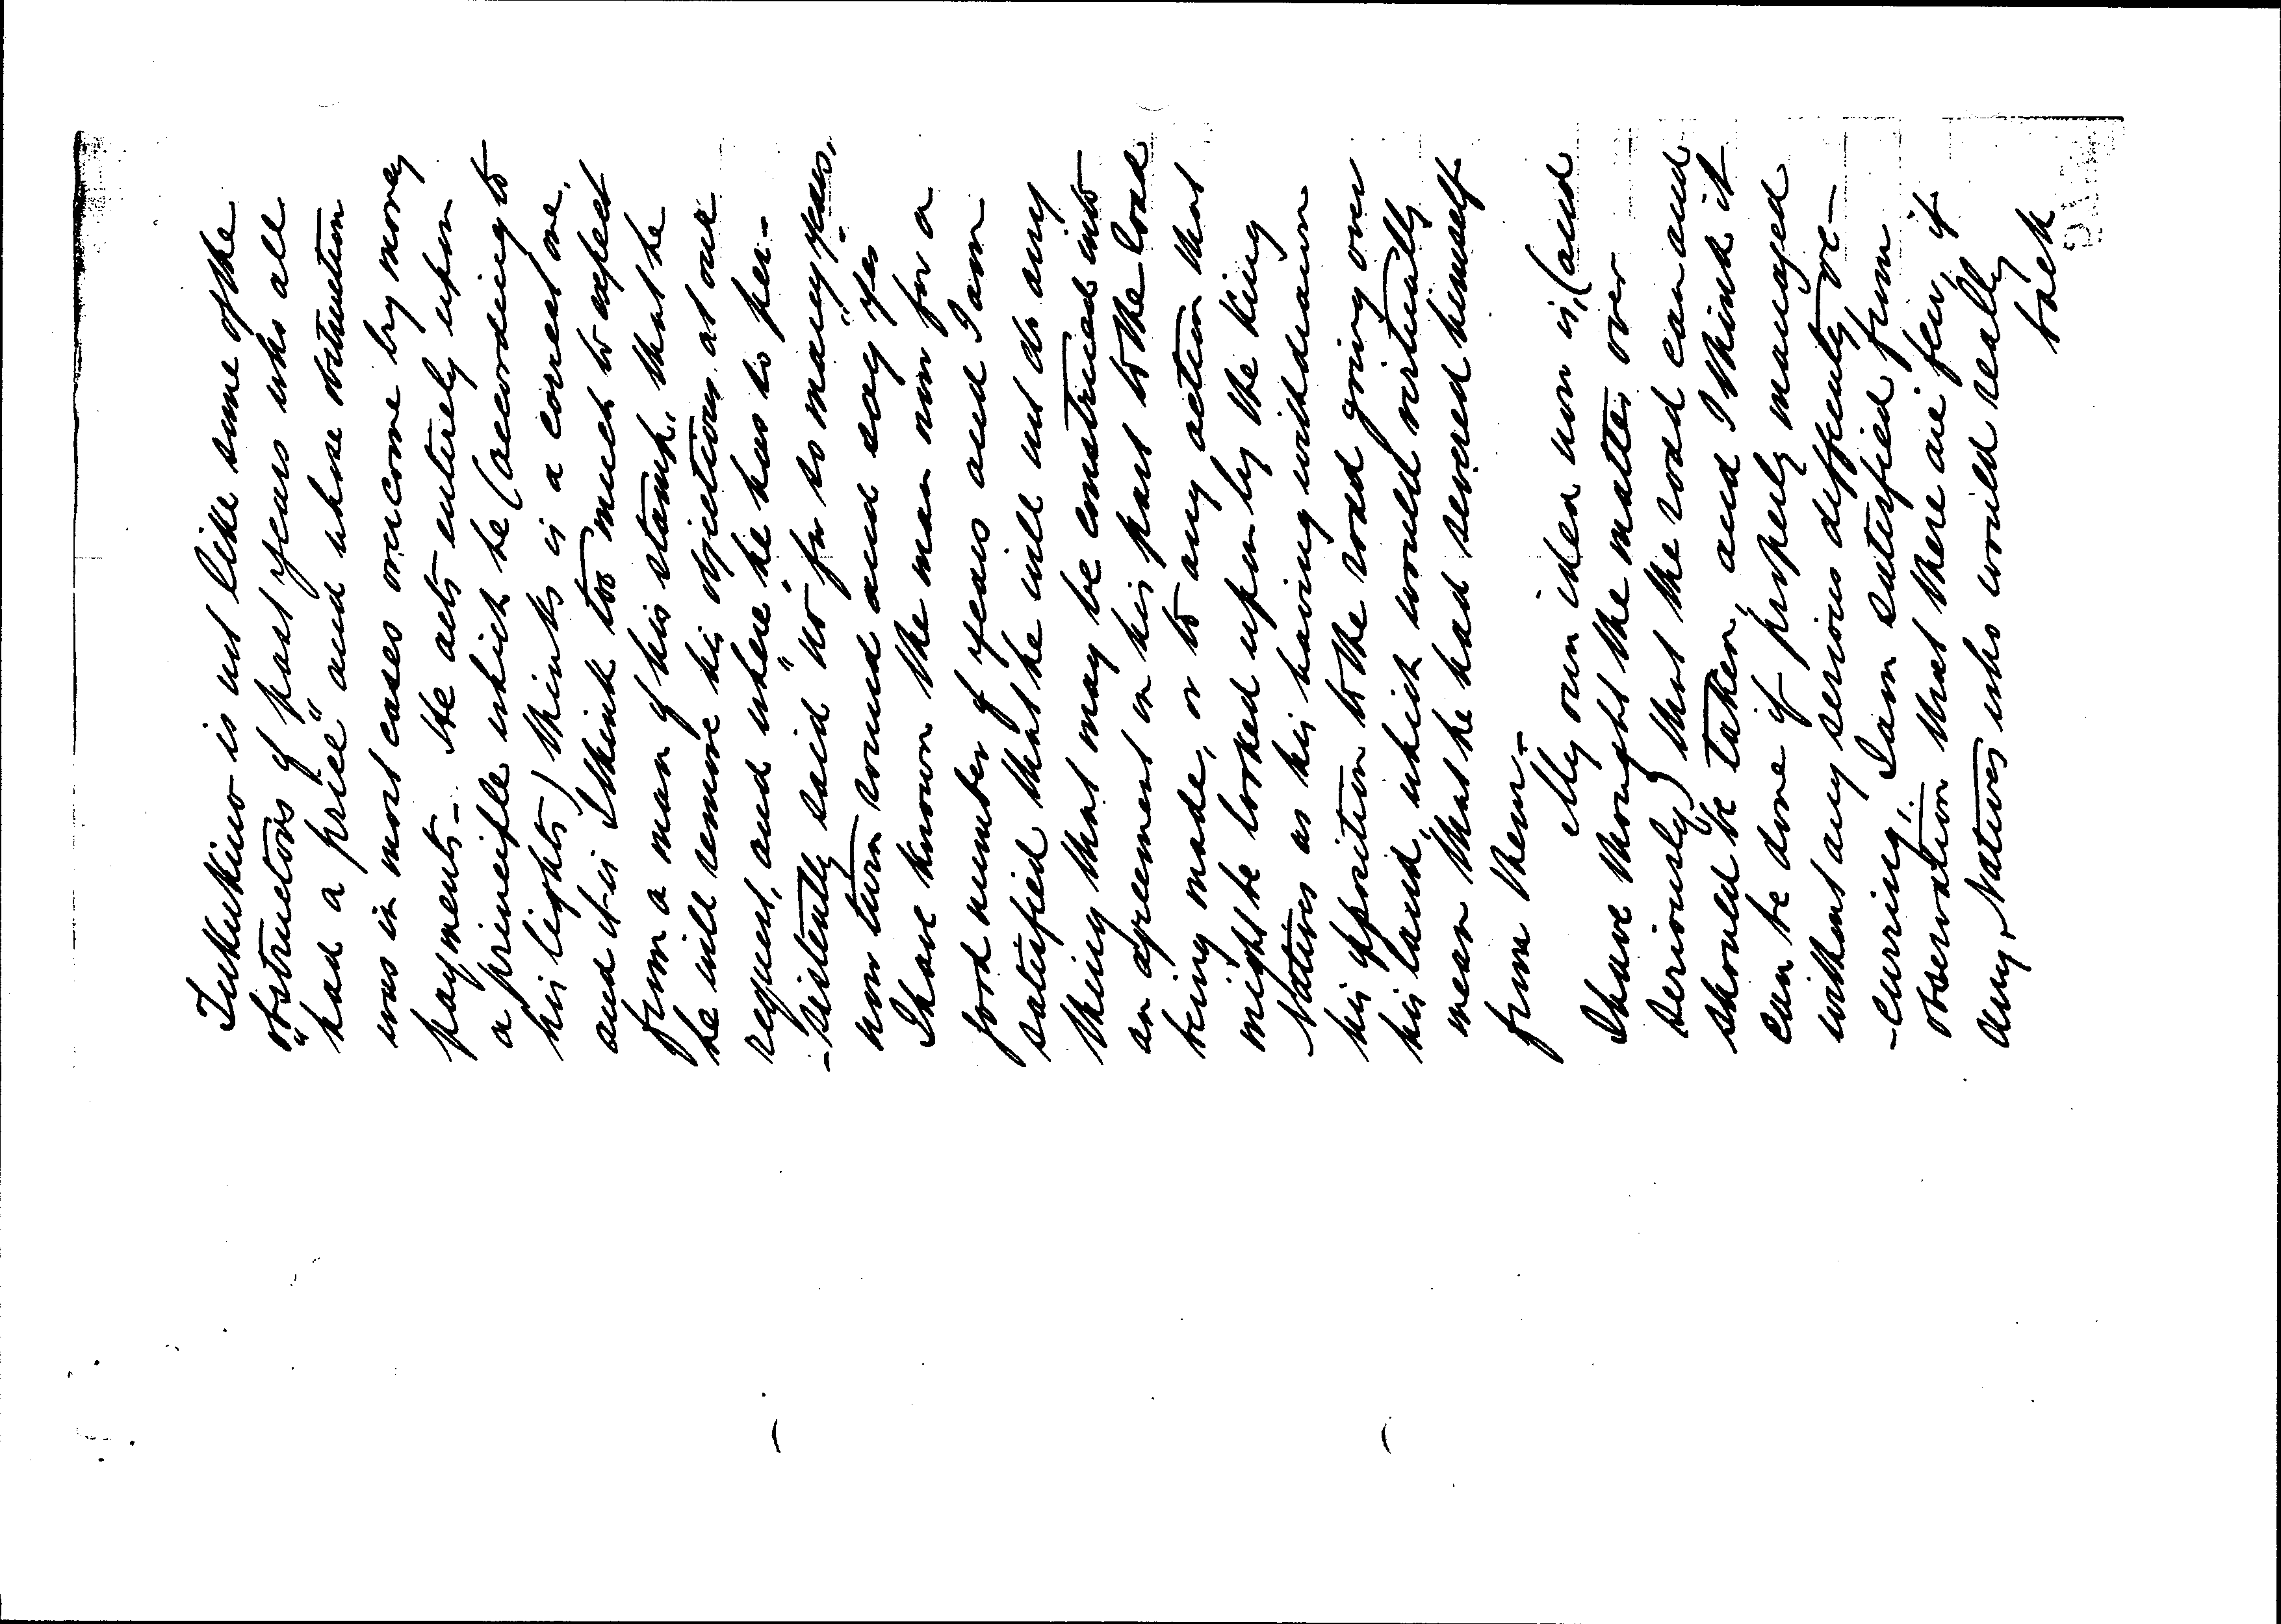 Tukukino is not like some of the
obstructors of past years who all
"had a price" and whose obstruction
was in most cases overcome by money
payments - He acts entirely upon
a principle which he (according to
his lights) thinks is a correct one,
and it is I think too much to expect
from a man of his stamp, that he
he will remove his objections at our
request, and where he has so per-
-sistently said "no" for so many years,
now turn round and say "yes"
I have known the man now for a
good number of years and I am
satisfied that he will not do any
thing that may be construed into
an agreement on his part to the road
being made, or to any action that
might be looked upon by the King
Natives as his having withdrawn
his opposition to the road going over
his land, which would virtually
mean that he had severed himself
from them -
My own idea now is, (and
I have thought the matter over
seriously) that the road can and
should be taken, and I think it
can be done if properly managed
without any serious difficulty oc-
-curring. I am satisfied from
observation that there are few, if
any, Natives who would really
back